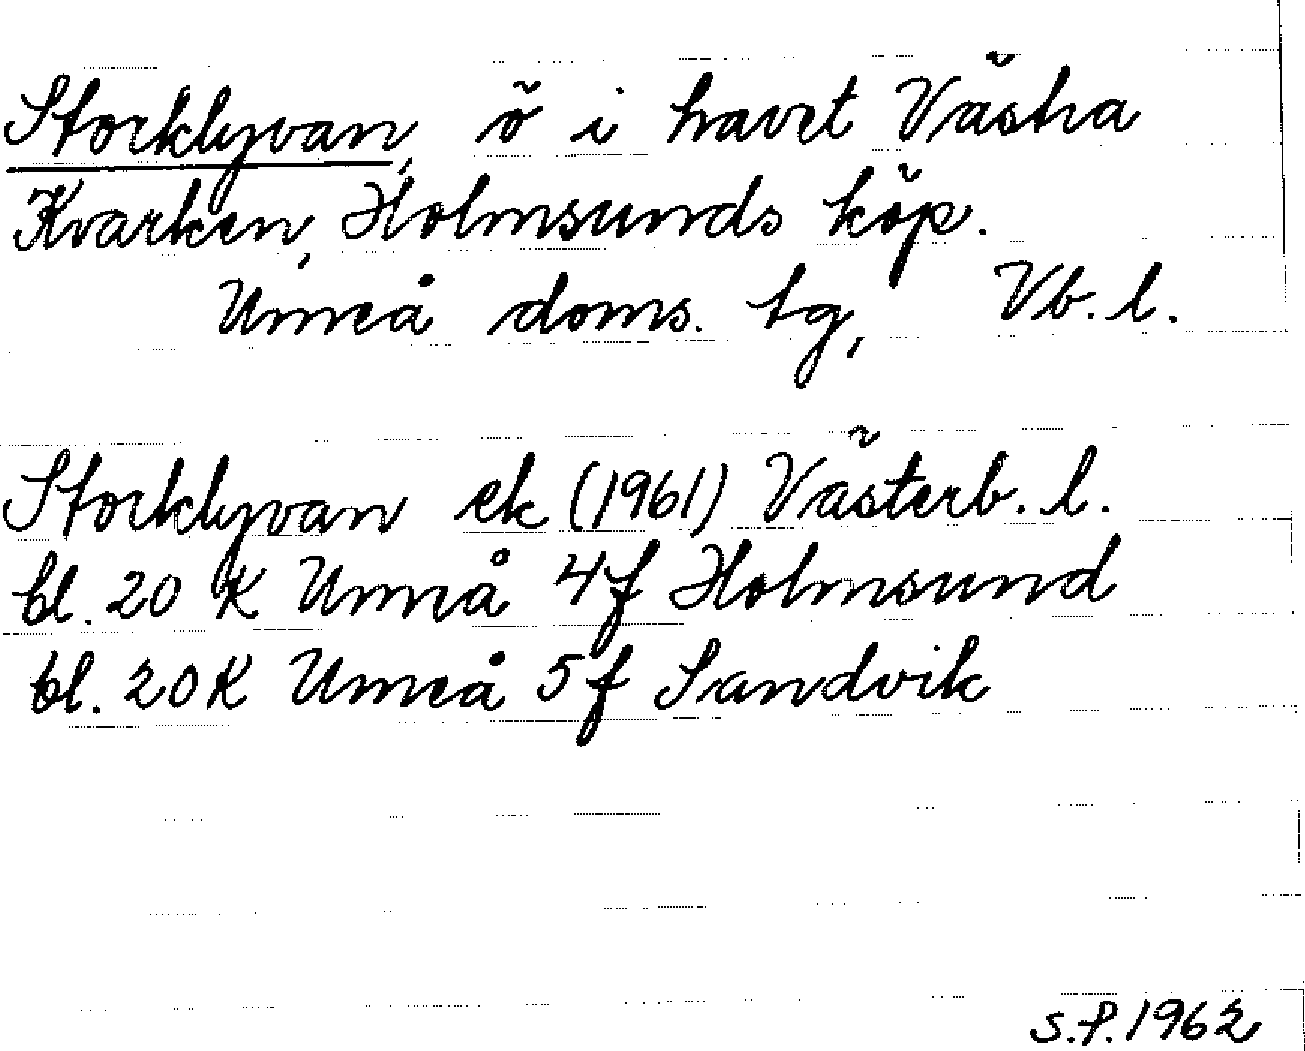 Storklyvan, ö i havet Västra
Kvarken, Holmsunds köp.
Umeå doms. tg, Vb. l.
Storklyvan ek (1961) Västerb. l.
bl. 20 K Umeå 4f Holmsund
bl. 20 K Umeå 5f Sandvik
S.P. 1962